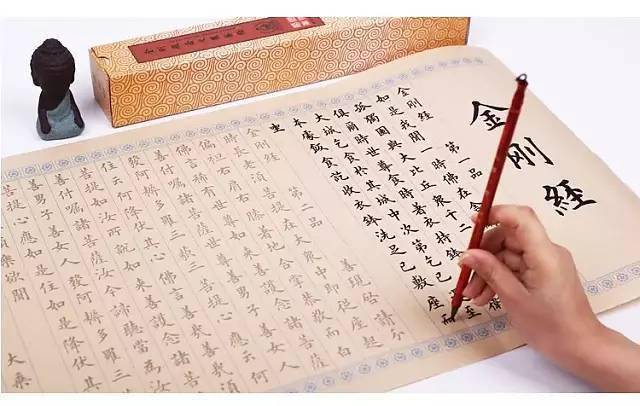 金剛經
金剛經 第一品
如是我聞一時佛在舍
孤獨園與大比丘衆千二
俱爾時世尊食時著衣持鉢
大城乞食於其城中次第乞已還至
本處飯食訖收衣鉢洗足已敷座而
坐
金剛經 第二品
時長老須菩提在大衆中即從座起
偏袒右肩右膝著地合掌恭敬而白
佛言希有世尊如來善護念諸菩薩
善付囑諸菩薩世尊善男子善女人
發阿耨多羅三藐三菩提心應云何
住云何降伏其心佛言善哉善哉須
菩提如汝所說如來善護念諸菩薩
善付囑諸菩薩汝今諦聽當為汝
善男子善女人發阿耨多羅三藐三
菩提心應如是住如是降伏其
樂欲聞
大乘